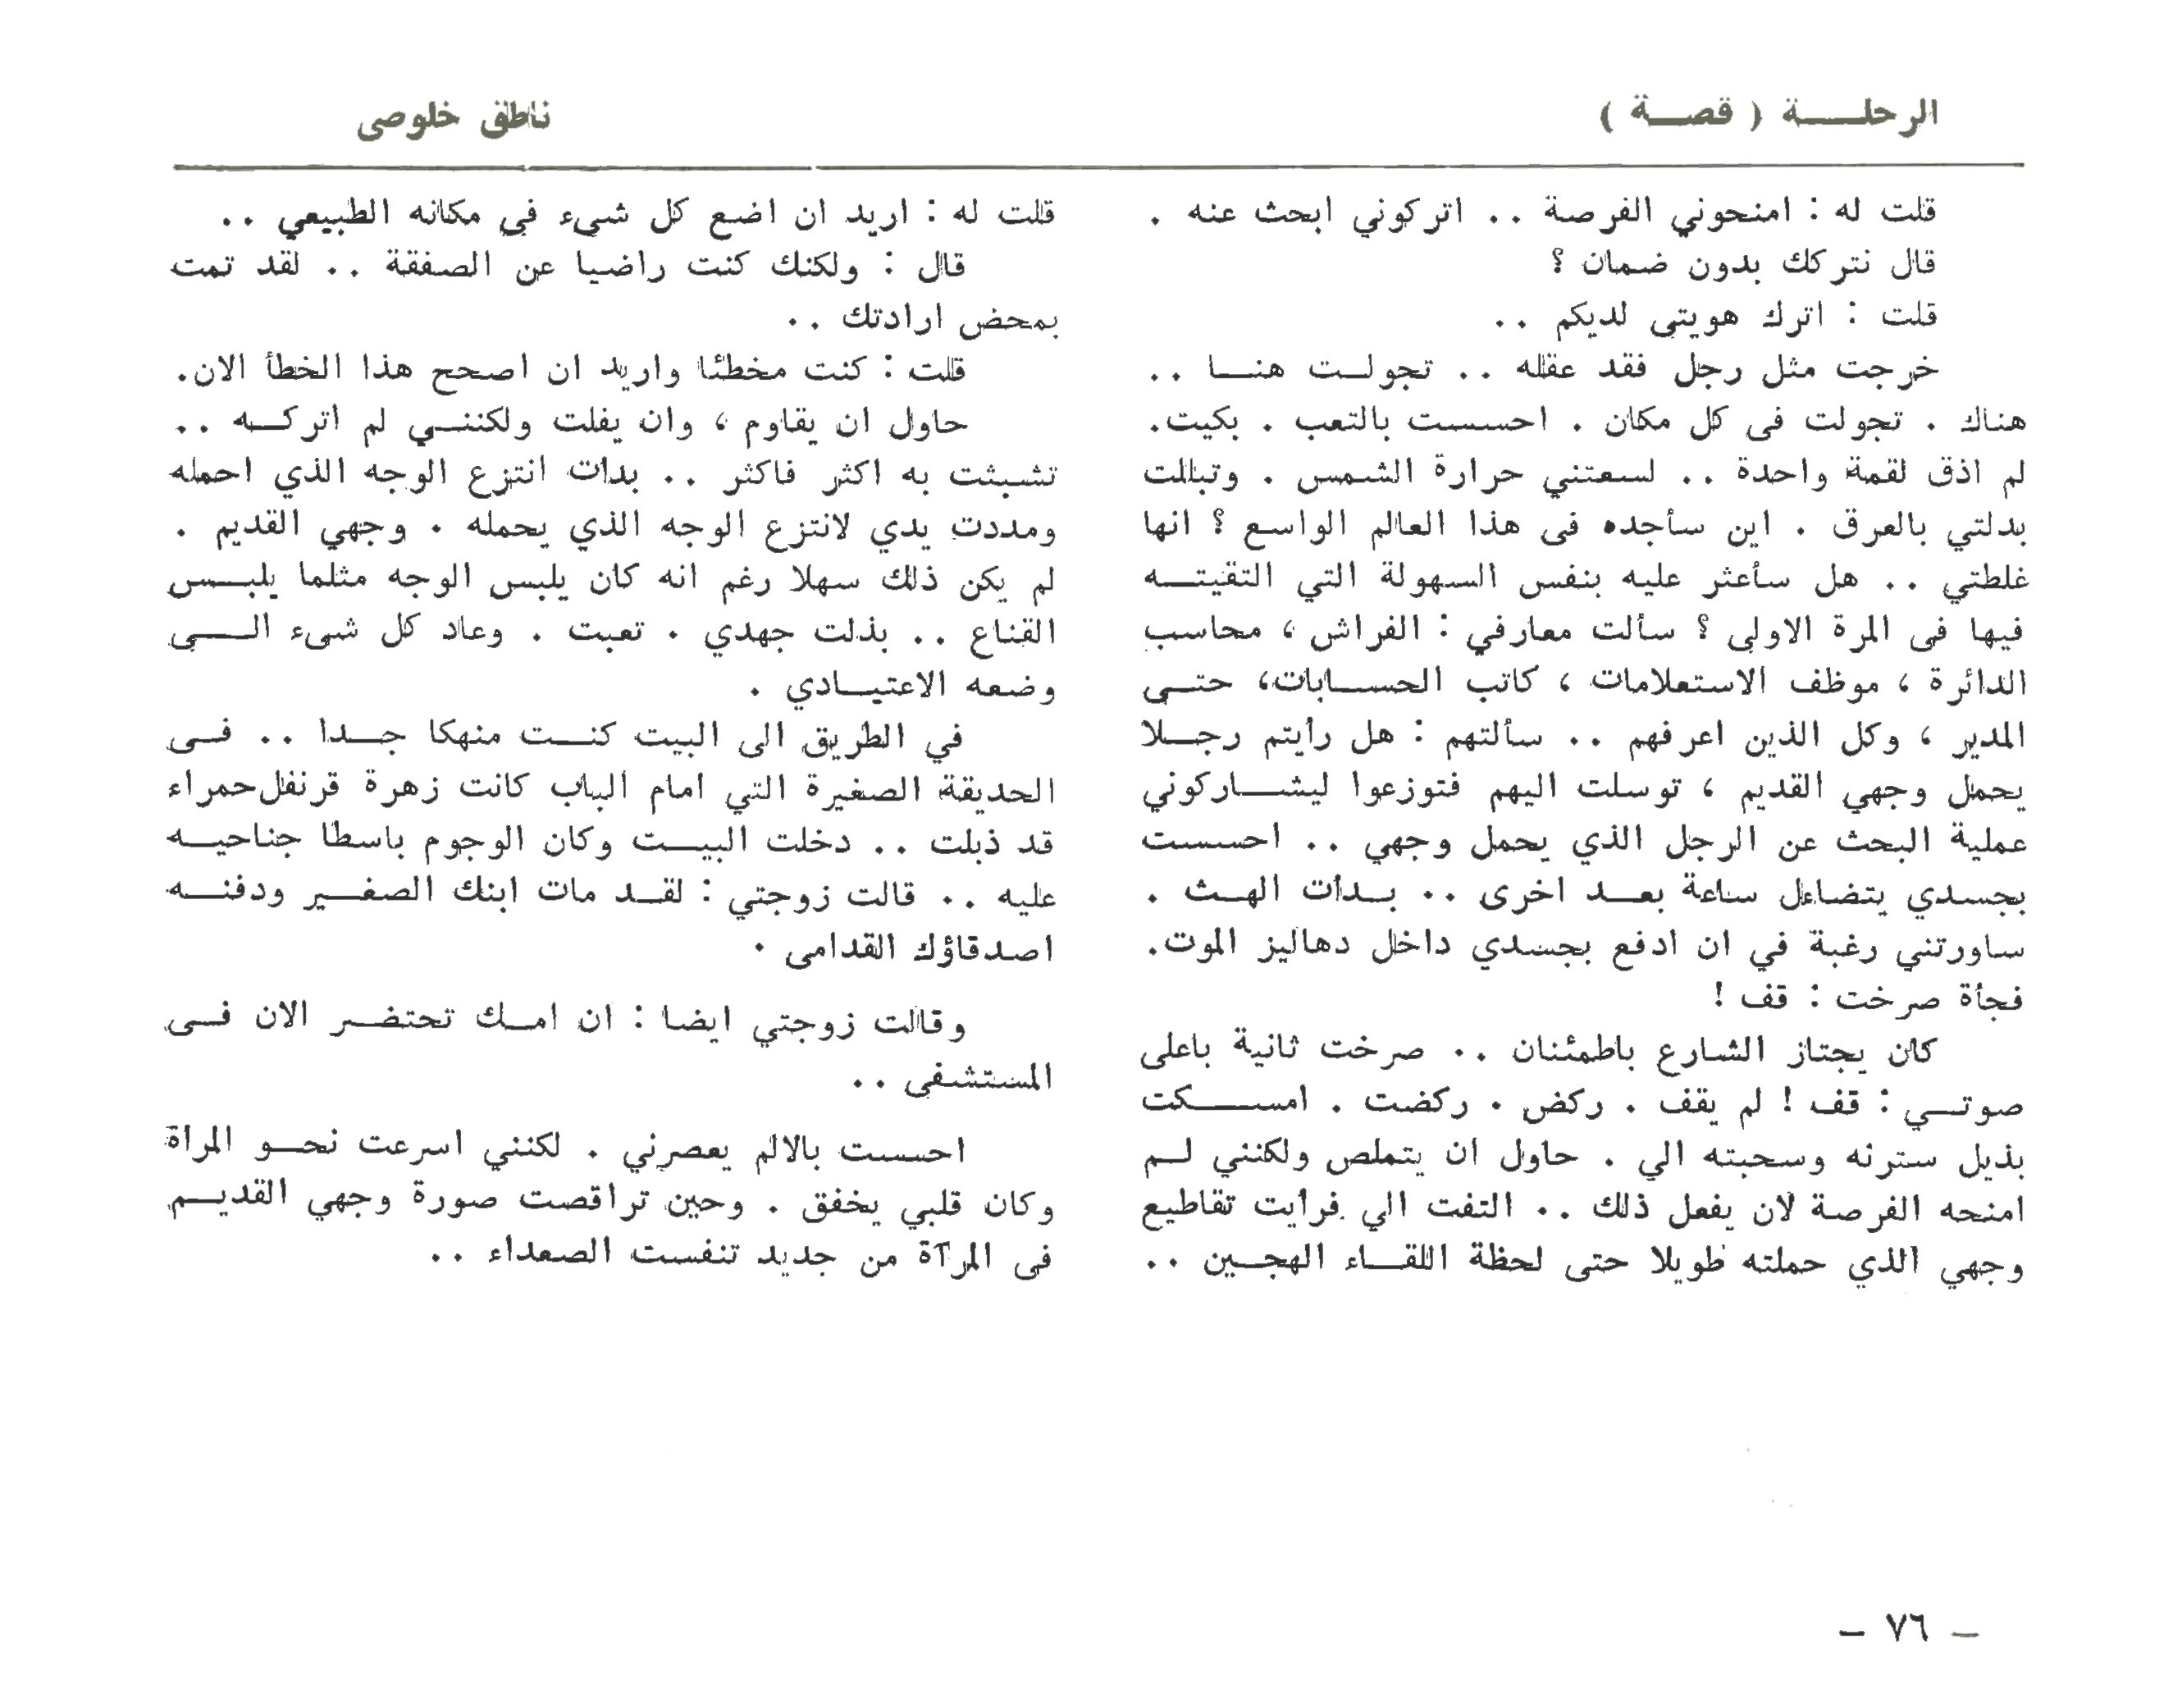 الرحلة ( قصة )
ناطق خلوصي
قلت له : امنحوني الفرصة .. اتركوني ابحث عنه .
قال نتركك بدون ضمان ؟
قلت : اترك هويتى لديكم ..
خرجت مثل رجل فقد عقله .. تجولت هنا ..
هناك . تجولت فى كل مكان . احسست بالتعب . بكيت.
لم اذق لقمة واحدة .. لسعتني حرارة الشمس . وتبللت
بدلتي بالعرق . اين سأجده فى هذا العالم الواسع ؟ انها
غلطتي .. هل سأعثر عليه بنفس السهولة التي التقيته
فيها فى المرة الاولى ؟ سألت معارفي : الفراش ، محاسب
الدائرة ، موظف الاستعلامات ، كاتب الحسابات، حتى
المدير ، وكل الذين اعرفهم .. سألتهم : هل رأيتم رجلا
يحمل وجهي القديم ، توسلت اليهم فتوزعوا ليشاركوني
عملية البحث عن الرجل الذي يحمل وجهي .. احسست
بجسدي يتضاءل ساعة بعد اخرى .. بدأت الهث .
ساورتني رغبة في ان ادفع بجسدي داخل دهاليز الموت.
فجأة صرخت : قف !
كان يجتاز الشارع باطمئنان .. صرخت ثانية باعلى
صوتي : قف ! لم يقف . ركض . ركضت . امسكت
بذيل سترته وسحبته الي . حاول ان يتملص ولكنني لم
امنحه الفرصة لان يفعل ذلك .. التفت الي فرأيت تقاطيع
وجهي الذي حملته طويلا حتى لحظة اللقاء الهجين ..
قلت له : اريد ان اضع كل شىء فى مكانه الطبيعي ..
قال : ولكنك كنت راضيا عن الصفقة .. لقد تمت
بمحض ارادتك ..
قلت : كنت مخطئا واريد ان اصحح هذا الخطأ الان.
حاول ان يقاوم ، وان يفلت ولكنني لم اتركه ..
تشبثت به اكثر فاكثر .. بدأت انتزع الوجه الذي احمله
ومددت يدي لانتزع الوجه الذي يحمله . وجهي القديم .
لم يكن ذلك سهلا رغم انه كان يلبس الوجه مثلما يلبس
القناع .. بذلت جهدي . تعبت . وعاد كل شىء الى
وضعه الاعتيادي .
في الطريق الى البيت كنت منهكا جدا .. فى
الحديقة الصغيرة التي امام الباب كانت زهرة قرنفل حمراء
قد ذبلت .. دخلت البيت وكان الوجوم باسطا جناحيه
عليه .. قالت زوجتي : لقد مات ابنك الصغير ودفنه
اصدقاؤك القدامى .
وقالت زوجتي ايضا : ان امك تحتضر الان فى
المستشفى ..
احسست بالالم يعصرني . لكنني اسرعت نحو المرآة
وكان قلبي يخفق . وحين تراقصت صورة وجهي القديم
فى المرآة من جديد تنفست الصعداء ..
– ٧٦ –